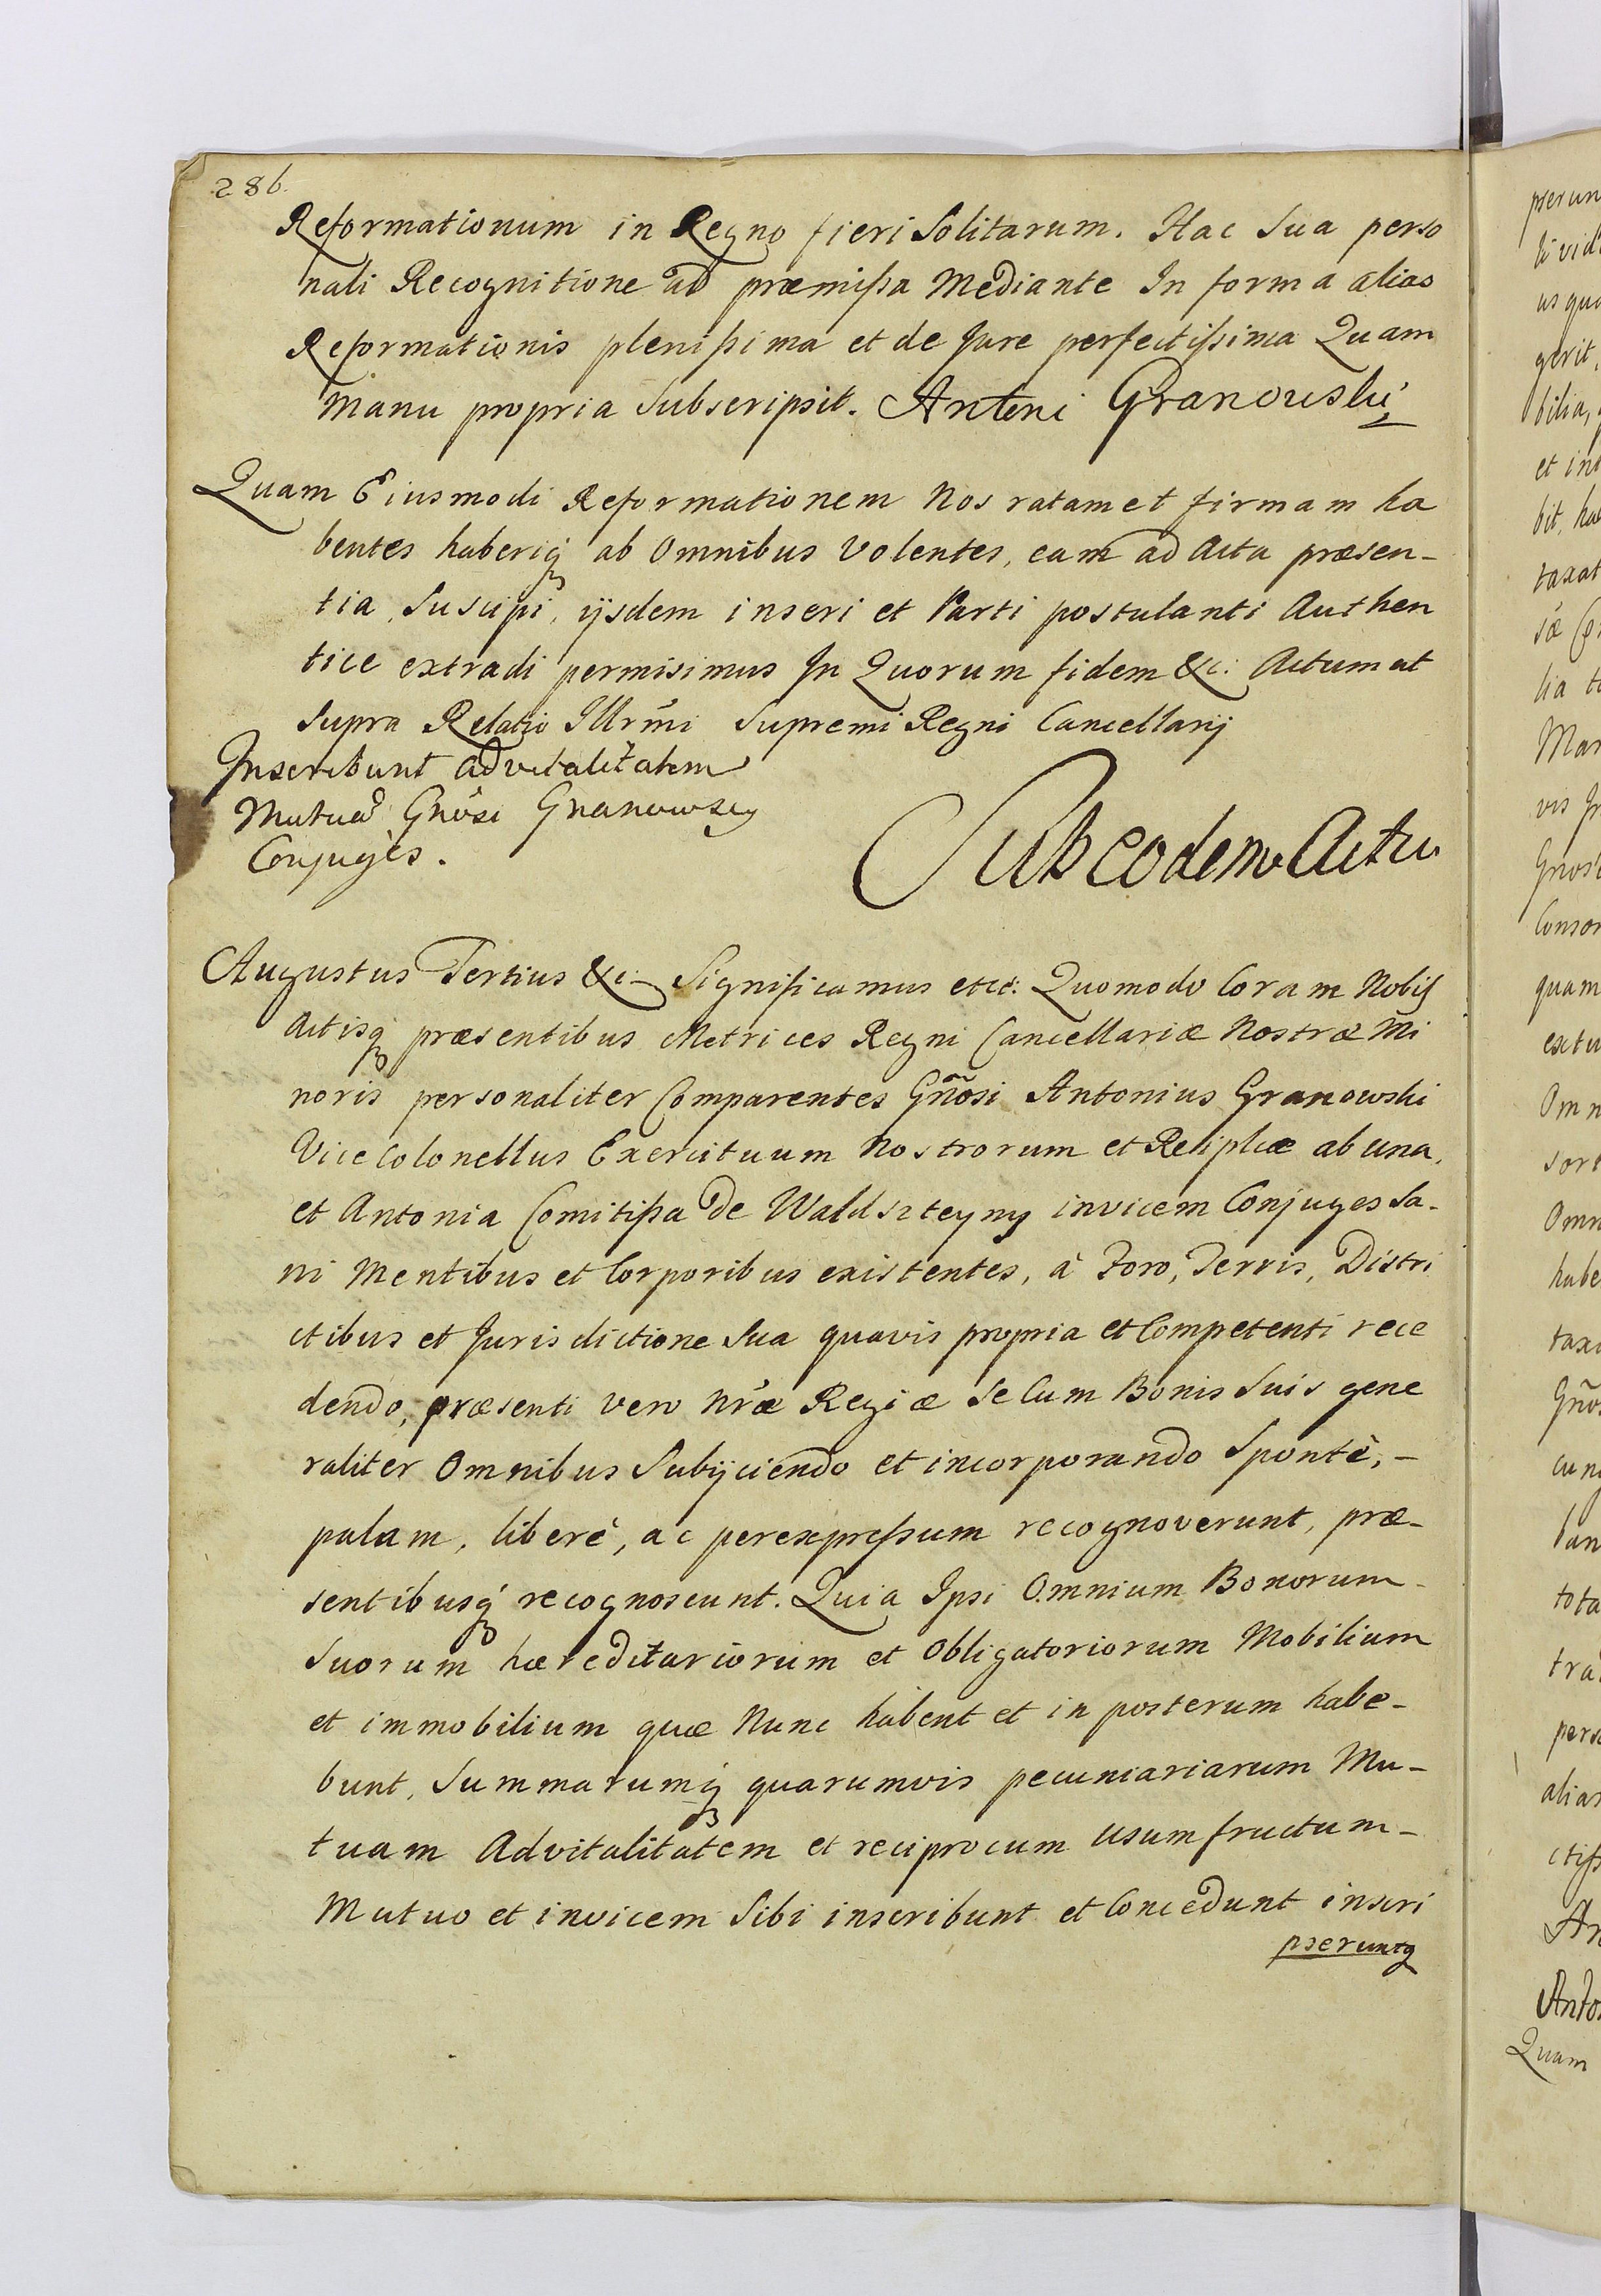 286.
Reformationum in Regno fieri Solitarum. Hac Sua perso
nali Recognitione ad præmissa Mediante In forma alias
Reformationis plenissima et de Jure perfectissima Quam
Manu propria Subscripsit. Antoni Granowski
Quam Eiusmodi Reformationem Nos ratam et firmam ha
bentes haberiq ab Omnibus Volentes, eam ad Acta præsen-
tia, Suscipi, ijsdem inseri et Parti postulanti Authen
tice extradi permisimus In Quorum fidem &c: Actum ut
Supra Relatio Illrmi Supremi Regni Cancellarij
Inscribunt advitalitatem
Mutuã Gñosi Granowscy
Conjuges.
Sub eodem Actu
Augustus Tertius &c. Significamus etc: Quomodo Coram Nobis
Actisq præsentibus Metrices Regni Cancellariæ Nostræ Mi
noris personaliter Comparentes Gñosi Antonius Granowski
Vice Colonellus Exercituum Nostrorum et Reiplicæ ab una,
et Antonia Comitissa de Waldszteyny invicem Conjuges Sa-
ni Mentibus et Corporibus existentes, à Foro, Terris, Distri
ctibus et Jurisdictione Sua quavis propria et Competenti rece
dendo, præsenti vero Nræ Regiæ se Cum Bonis Suis gene
raliter Omnibus Subijciendo et incorporando Spontè,-
palam, liberè, ac per expressum recognoverunt, præ-
sentibusq recognoscunt. Quia Ipsi Omnium Bonorum
Suorum hæreditariorum et Obligatoriorum Mobilium
et immobilium quæ Nunc habent et in posterum habe-
bunt, Summarumq quarumvis pecuniariarum Mu-
tuam Advitalitatem et reciprocum Usumfructum-
Mutuo et invicem Sibi inscribunt et Concedunt inscri
pseruntq